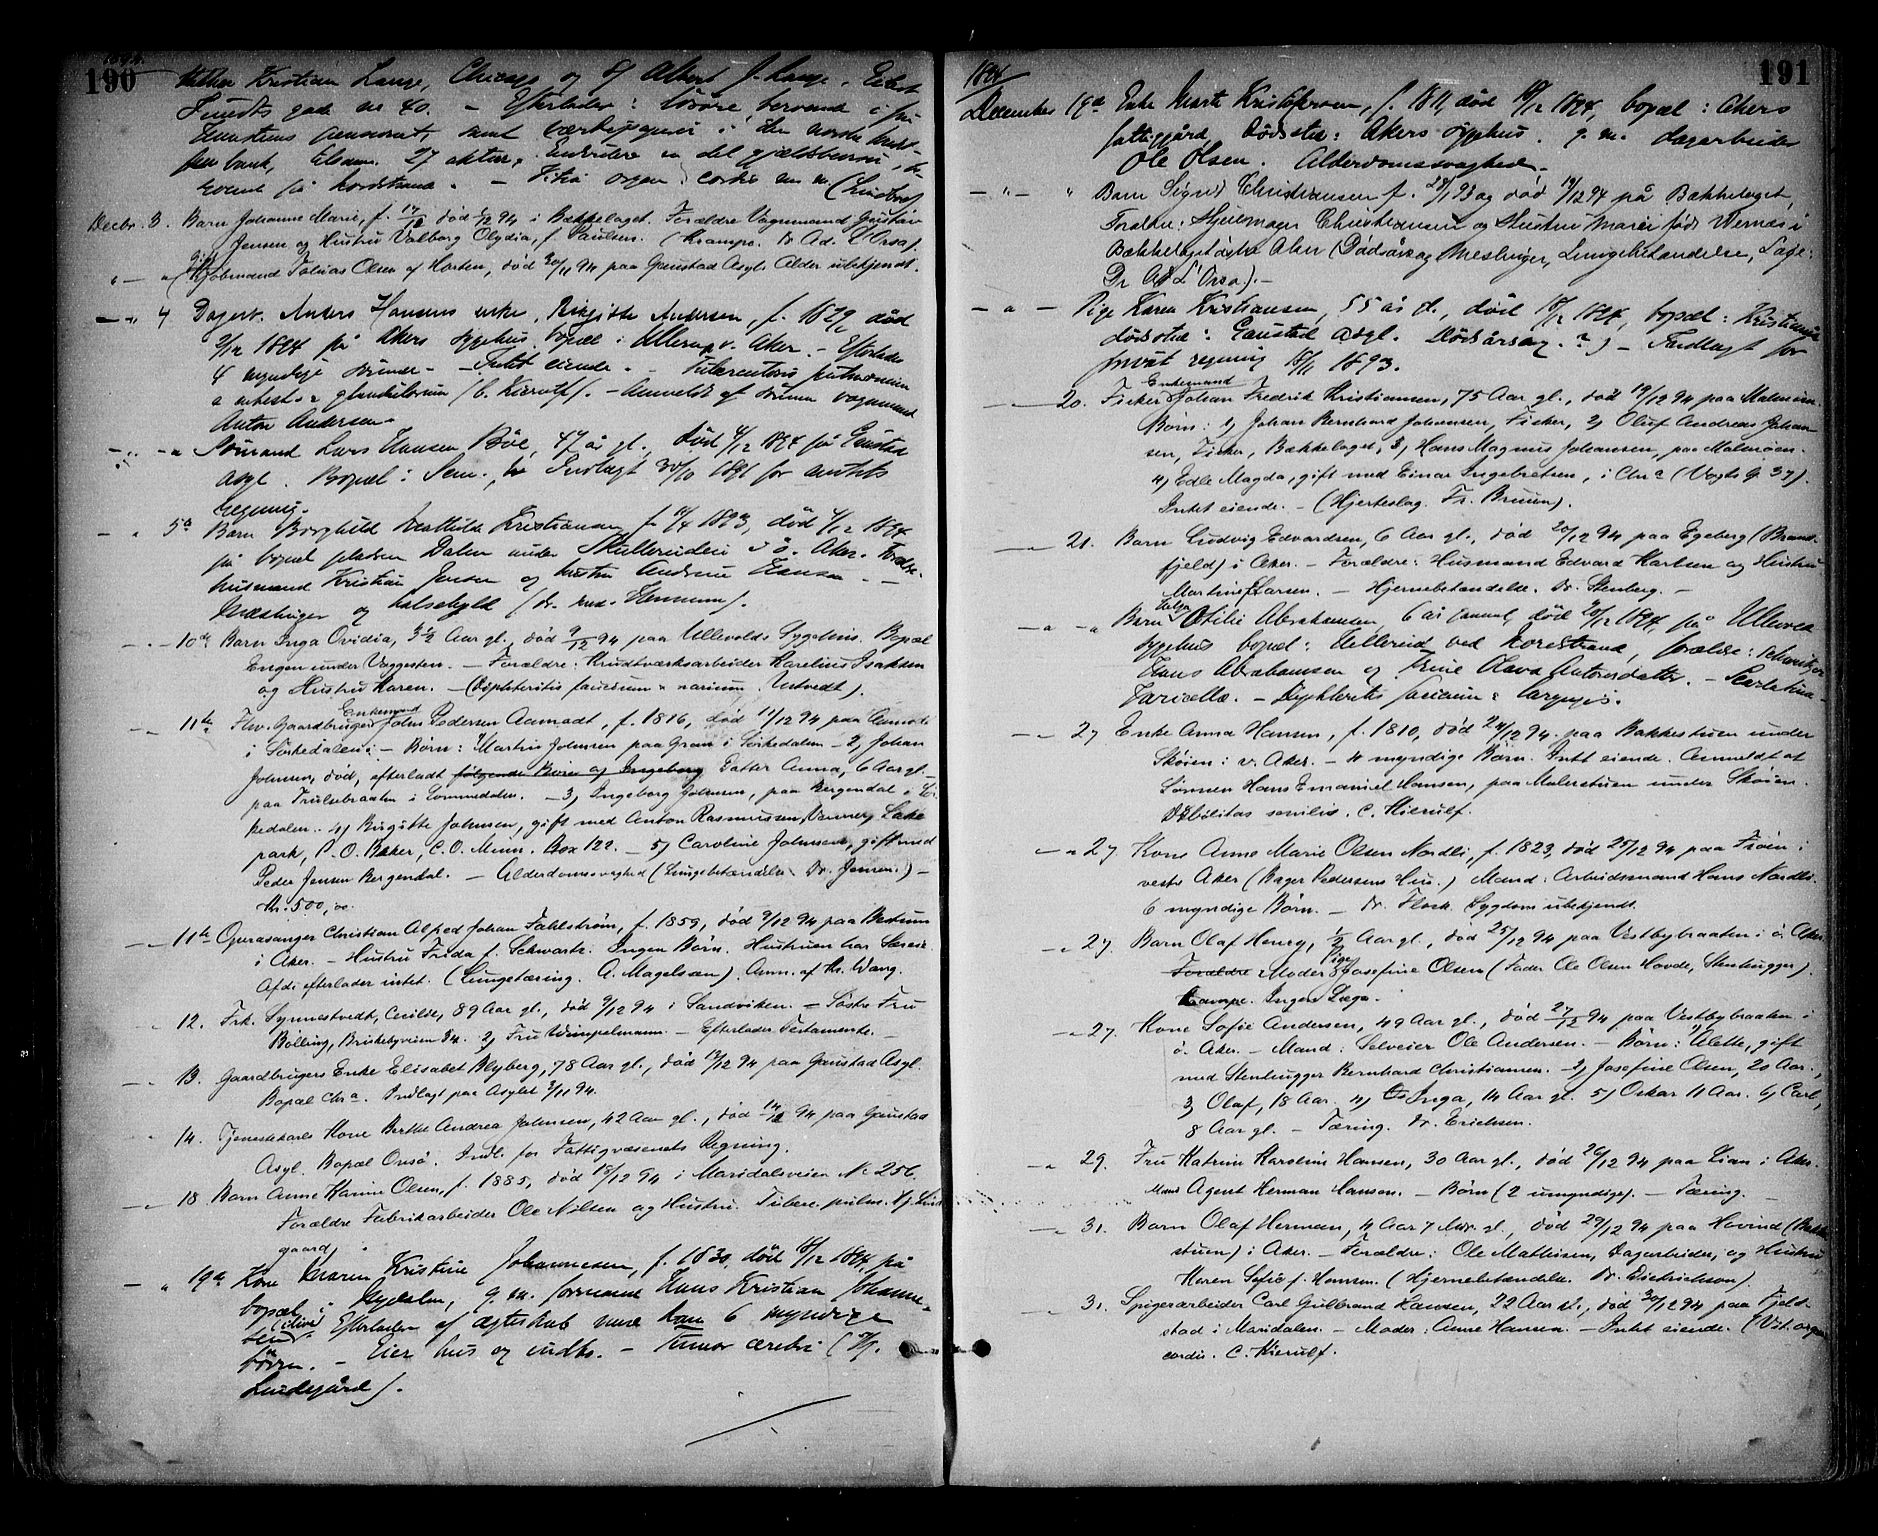 1894.
190
Kristian Lange, Chicago og 5) Albert J. Lange, Eilert
Sundts gade no 40. – Efterlader: løsøre, beroende i
pensionat, samt værdipapirer i den norske
bank, 27 aktier. Endvidere en del gjældsbeviser,
på Nordstrand. – Vitium organ. cordis
Decbr. 3. Barn Johanne Marie, f. død 94 i Bækkelaget. Forældre Vognmand Gustav
Jensen og Hustru Valborg Olydia, f. Paulsen. (Krampe. Dr Ad. L'Orsa).
" (Gift) Kjøbmand Tobias Olsen af Horten, død 30/11 94 paa Gaustad Asyl. Alder ubekjendt.
– " 4 Dagarb. Anders Hansens enke, Birgitte Andersen, f. 1829, død
2/12 1894 på Akers sygehus, bopæl: Ullern v. Aker. – Efterlader
4 myndige sønner. – Intet eiende. – pulmonum
(C. Kierulf). – Anmeldt af sønnen vognmand
Anton Andersen.
– " – " Sømand Lars Hansen Bøe, 47 år gl., død 4/12 1894 på Gaustad
asyl. Bopæl: Sem. Indlagt 30/10 1891 for amtets
regning.
– " 5te Barn Borghild Mathilde Kristiansen, f. 1893, død 4/12 1894
på bopæl pladsen Dalen under Skullerud i ø. Aker. Forældre:
husmand Kristian Jensen og hustru Andrine Hansen. –
Mæslinger og halsebyld (Dr. Hemmum).
– " – 10de Barn Inga Ovidia, 3½ Aar gl., død 9/12 94 paa Ullevolds Sygehus. Bopæl
Engen under Voggesten. – Forældre: Krudtværksarbeider Karelius Isaksen
og Hustru Karen. – (Diphteritis faucium & narium. Ustvedt).
– " 11te Fhv. Gaardbruger Enkemand John Pedersen Aamodt, f. 1816, død 11/12 94 paa Aamodt
i Sørkedalen: – Børn: 1) Martin Johnsen paa Gran i Sørkedalen – 2) Johan
Johnsen, død, efterladt følgende Børn af Ingeborg Datter Anna, 6 Aar gl.
paa Trulsebraaten i Lommedalen. – 3) Ingeborg Johnsen, paa Bergendal i Sør-
kedalen. 4) Birgitte Johnsen, gift med Anton Rasmussen Venner, Lake
park, P.O. Baker, C.O. Minn. Box 122. – 5) Caroline Johnsen, gift med
Peder Jensen Bergendal. – Alderdomssvaghed (Lungebetændelse Dr. Jensen.) –
Kr. 500,00.
– " 11te Operasanger Christian Alfred Johan Fahlstrøm, f. 1859, død 9/12 94 paa Bestum
i Aker. – Hustru Frida f. Schwartz. Ingen Børn. Hustruen har Særeie
Afdøde efterlader intet. (Lungetæring. A. Magelssen). Anm. af Hr. Wang.
– " 12. Frk. Synnestvedt, Cecilie, 89 Aar gl., død 9/12 94 i Sandviken. – Søstre Fru
Bølling, Briskebyveien 34. 2) Fru Wimpelmann. – Efterlader Testamente.
– " 13. Gaardbrugers Enke Elisabet Blyberg, 78 Aar gl., død 12/12 94 paa Gaustad Asyl.
Bopæl Chra. Indlagt paa Asylet 3/11 94.
14. Tjenestekarls Kone Berthe Andrea Johnsen, 42 Aar gl., død 14/12 94 paa Gaustad
Asyl. Bopæl Onsø. Indl. for Fattigvæsenets Regning.
– " 18. Barn Anne Karine Olsen, f. 1885, død 15/12 94 i Maridalsveien No 256.
Forældre Fabrikarbeider Ole Nilsen og Hustru. Tuberc. pulm. Hj. Lind-
gaard.
– " 19de Kone Maren Kristine Johannesen, f. 1830, død 18/12 1894, på
bopæl i Nydalen, g. m. formand Hans Kristian Johanne-
sen (i live). Efterlader af ægteskab med ham 6 myndige
børn. – Eier hus og indbo. – Tumor cerebri (Hj.
Lindegård).
1894
191
December 19de Enke Marte Kristofersen, f. 1811, død 18/12 1894, bopæl: Akers
fattiggård, Dødssted: Akers sygehus. g. m. dagarbeider
Ole Olsen. Alderdomssvaghed.
– " – " Barn Sigrid Christiansen f. 28/1 93 og død 19/12 94 på Bækkelaget,
Forældre: Hjulmager Christiansen og Hustru Marie født Wernes i
Bækkelaget østre Aker (Dødsårsag Meslinger, Lungebetændelse, Læge:
Dr Ad L'Orsa). –
– " – Pige Karen Kristiansen, 55 år gl., død 18/12 1894, bopæl: Kristiania
dødssted: Gaustad asyl. Dødsårsag: ? – Indlagt for
privat regning 15/11 1893.
– " 20. Fisker Enkemand Johan Fredrik Kristiansen, 75 Aar gl., død 19/12 94 paa Malmøen.
Børn: 1) Johan Bernhard Johansen, Fisker, 2) Oluf Andreas Johan-
sen, Fisker, Bækkelaget, 3) Hans Magnus Johansen, paa Malmøen.
4) Edle Magda, gift med Einar Ingebretsen, i Chra (Vogts G. 37).
Intet eiende. – (Hjerteslag. Fr. Bruun).
– " 21. Barn Ludvig Edvardsen, 6 Aar gl., død 20/12 94 paa Egeberg (Brand-
fjeld) i Aker. – Forældre: Husmand Edvard Karlsen og Hustru
Martine f. Larsen. – Hjernebetændelse. Dr. Stenberg. –
– " – " Barn Helga Otilie Abrahamsen, 6 år gammel, død 20/12 1894, på Ullevold
sygehus bopæl: Hellerud ved Nordstrand, forældre:
Hans Abrahamsen og Trine Olava Antonsdatter. – Scarlatina
Varicellæ. – Diphterits faucium & laryngis.
– " 27 Enke Anna Hansen, f. 1810, død 24/12 94 paa Bakkestuen under
Skøien i v. Aker. – 4 myndige Børn. Intet eiende. Anmeldt af
Sønnen Hans Emanuel Hansen, paa Malerstuen under Skøien.
Debilitas senilis. C. Kierulf.
– " 27. Kone Anne Marie Olsen Nordli, f. 1823, død 25/12 94 paa Frøen i
vestre Aker (Bager Pedersens Hus.) Mand: Arbeidsmand Hans Nordli.
6 myndige Børn. – Dr. Flock. Sygdom ubekjendt.
– " 27. Barn Olaf Henry, ½ Aar gl., død 25/12 94 paa Vestbybraaten i ø. Aker.
Forældre Moder Pige Josefine Olsen (Fader Ole Olsen Hovde, Stenhugger).
Krampe. Ingen Læge.
– " 27. Kone Sofie Andersen, 49 Aar gl., død 27/12 94 paa Vestbybraaten i
ø. Aker. – Mand: Selveier Ole Andersen. – Børn: Ulette, gift
med Stenhugger Bernhard Christiansen. 2) Josefine Olsen, 20 Aar.,
3) Olaf, 18 Aar. 4) Inga, 14 Aar gl. 5) Oskar 11 Aar. 6) Carl,
8 Aar gl. – Tæring. Dr. Erichsen.
– " 29. Fru Katrine Karoline Hansen, 30 Aar gl., død 26/12 94 paa Lian i Aker.
Mand Agent Herman Hansen. – Børn (2 umyndige). – Tæring. –
– " 31. Barn Olaf Herman, 4 Aar 7 Mdr. gl., død 29/12 94 paa Hovind (Bakke-
stuen) i Aker. – Forældre: Ole Mathisen, Dagarbeider, og Hustru
Karen Sofie f. Hansen. (Hjernebetændelse Dr. Dietrichson).
– " 31. Spigerarbeider Carl Gulbrand Hansen, 22 Aar gl., død 30/12 94 paa Fjeld-
stad i Maridalen. – Moder: Anne Hansen. – Intet eiende. (Vit. organ.
cordis. C. Kierulf.